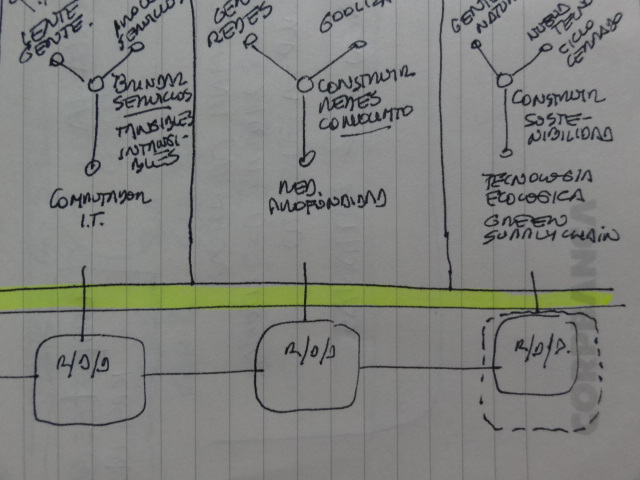 GENTE
GENTE.
SERVICIOS
BRINDAR
SERVICIOS
TANGIBLES
INTANGI-
BLES
COMPUTADOR
I.T.
REDES
CONSTRUIR
REDES
RED.
PROFUNDIDAD
NUEVA
CICLO
CERRADO
CONSTRUIR
SOSTE-
NIBILIDAD
TECNOLOGIA
ECOLOGICA
GREEN
SUPPLY CHAIN
R/D/D
R/D/D
R/D/D.